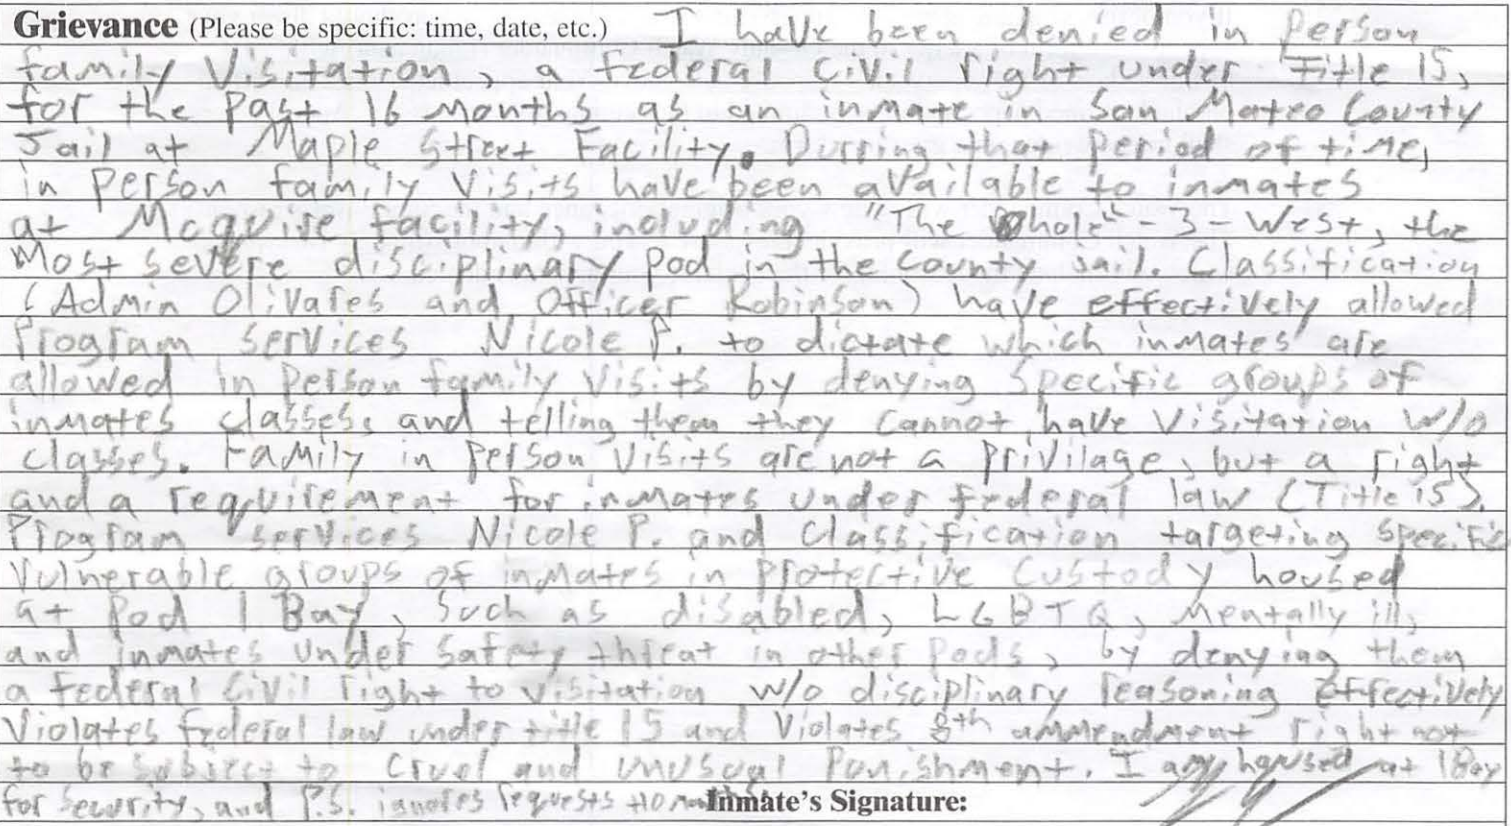 Grievance (Please be specific: time, date, etc.) I have been denied in person
family visitation, a federal civil right under Title 15,
for the past 16 months as an inmate in San Mateo County
Jail at Maple Street Facility. Durring that period of time,
in person family visits have been available to inmates
at Mcguire facility, including "The whole" - 3 - West, the
most severe disciplinary pod in the county jail. Classification
(Admin Olivares and Officer Robinson) have effectively allowed
Program services Nicole P. to dictate which inmates are
allowed in person family visits by denying specific groups of
inmates classes, and telling them they cannot have visitation w/o
classes. Family in person visits are not a privilage, but a right
and a requirement for inmates under federal law (Title 15).
Program services Nicole P. and Classification targeting specific
vulnerable groups of inmates in protective custody housed
at Pod 1 Bay, such as disabled, LGBTQ, mentally ill,
and inmates under safety threat in other pods, by denying them
a federal civil right to visitation w/o disciplinary reasoning effectively
violates federal law under title 15 and violates 8th ammendment right not
to be subject to cruel and unusual punishment. I am housed at 1Bay
for security, and P.S. ignores requests to Inmate's Signature: